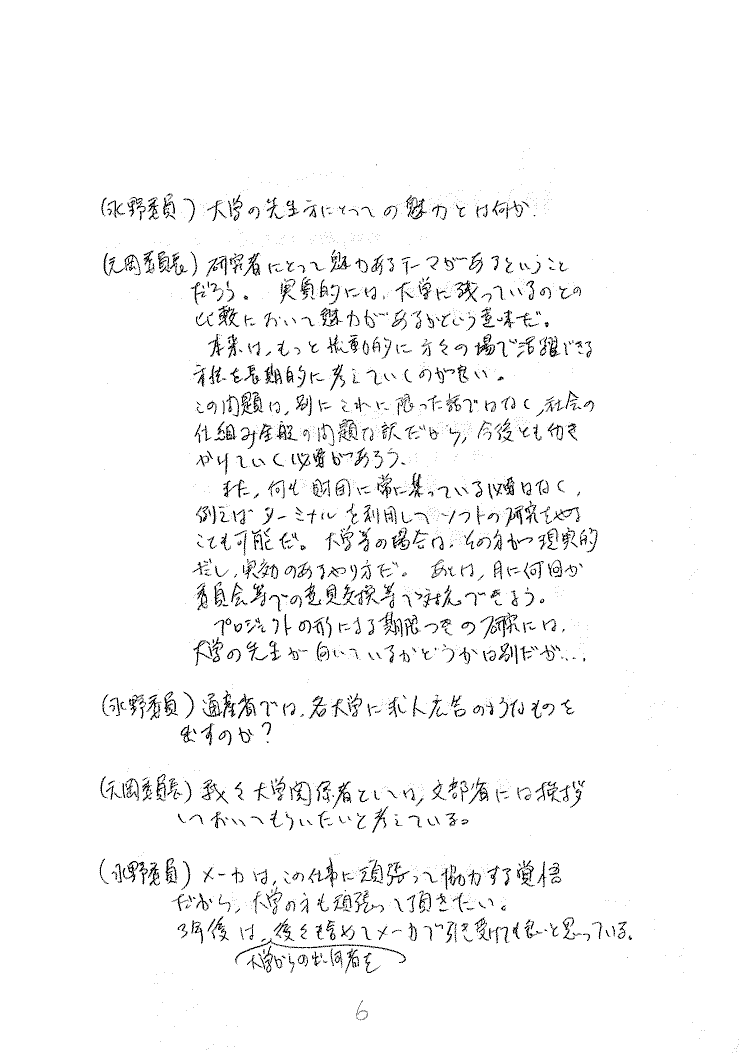 (水野委員) 大学の先生方にとっての魅力とは何か.
(元岡委員長) 研究者にとって魅力あるテーマがあるということ
だろう。 実質的には、大学に残っているのとの
比較において魅力があるかという意味だ。
本来は、もっと流動的に方々の場で活躍できる
方法を長期的に考えていくのが良い。
この問題は、別にこれに限った話ではなく、社会の
仕組み全般の問題な訳だから、今後とも働き
かけていく必要があろう、
また、何も財団に常に集っている必要はなく、
例えば ターミナルを利用して ソフトの研究をやる
ことも可能だ。 大学等の場合は、その方がつ現実的
だし、実効のあるやり方だ。 あとは、月に何回か
委員会等での意見交換等で対応できよう。
プロジェクトの形による期限つきの研究には、
大学の先生が向いているかどうかは別だが....
(水野委員) 通産省では、各大学に求人広告のようなものを
出すのか?
(元岡委員長) 我々大学関係者としては、文部省には挨拶
しておいてもらいたいと考えている。
(水野委員) メーカは、この仕事に頑張って協力する覚悟
だから、大学の方も頑張って頂きたい。
3年後は、後々も含めてメーカで引き受けても良いと思っている。
大学からの出向者を
6